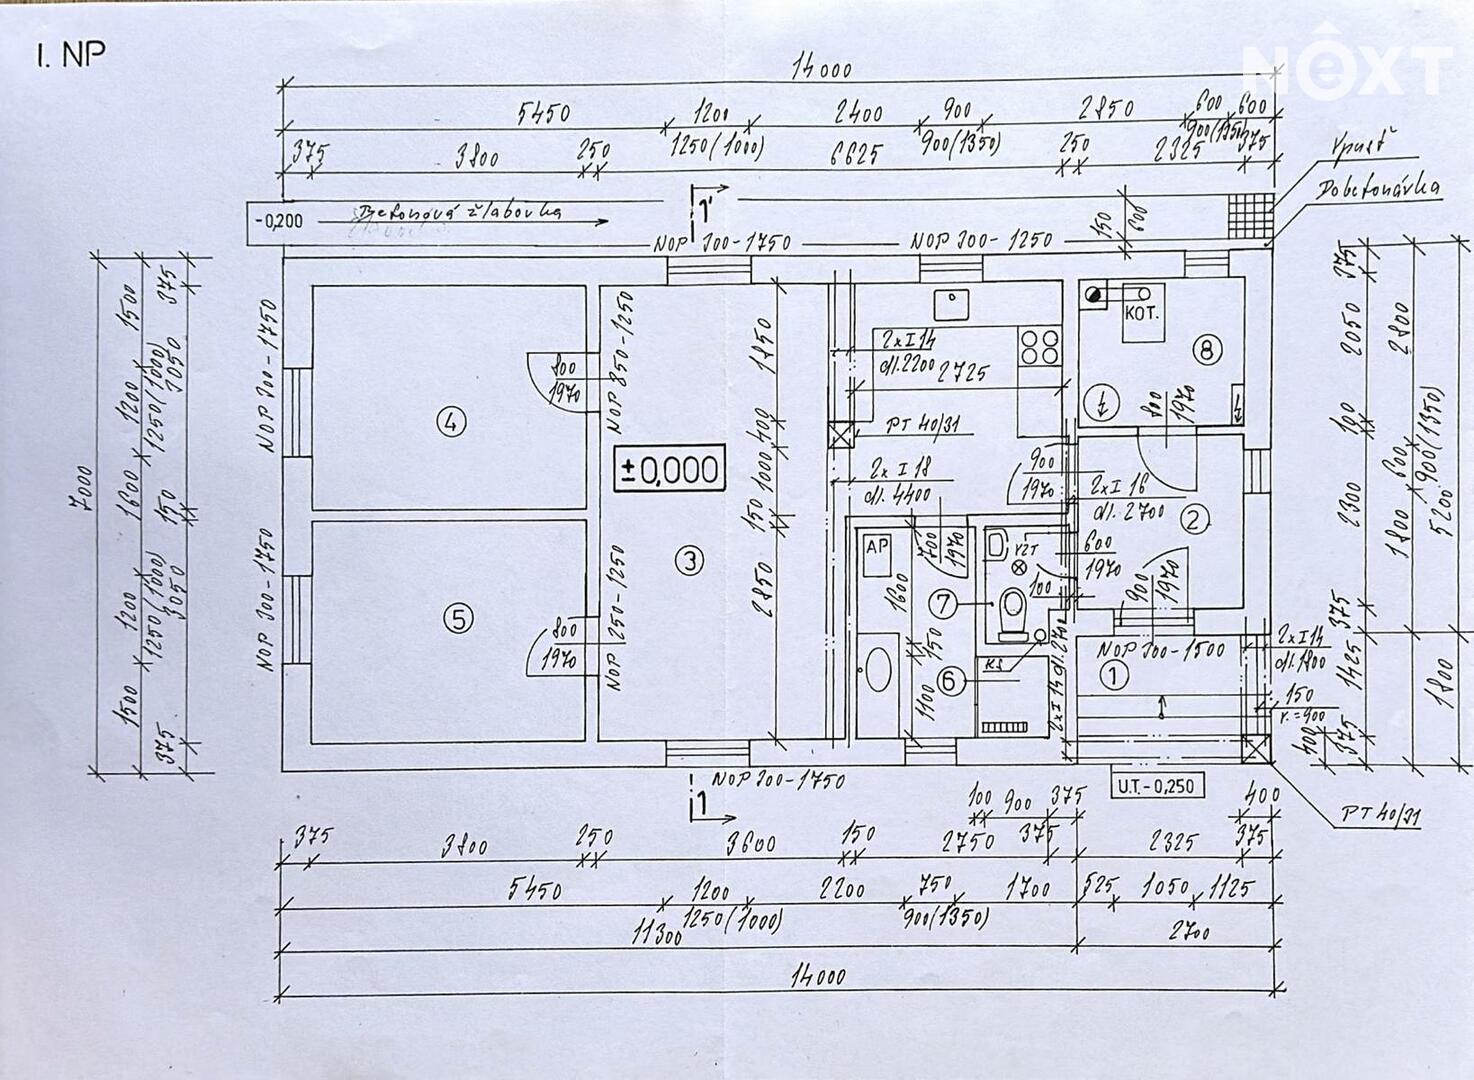 I. NP
NÊXT
14000
5450
1200
2400
900
2850
600
600
1250(1000)
900(1350)
900(1350)
375
3800
250
6625
250
2325
375
Vpusť
Dobetonávka
-0,200
Betonová žlabovka
1'
150
600
NOP 300-1750
NOP 300-1250
7000
1500
1200
1600
1200
1500
1250(1000)
1250(1000)
375
3050
150
3050
375
NOP 300-1750
NOP 300-1750
4
800
1970
NOP 850-1250
5
800
1970
NOP 250-1250
±0,000
3
1850
400
1000
150
2850
2xI14
dl.2200
2725
PT 40/31
2xI18
dl.4400
KOT.
8
800
1970
900
1970
2xI16
dl.2700
2
AP
700
1970
VZT
600
1970
100
900
1970
1600
150
1100
7
6
KS
2xI14 dl.2700
NOP 300-1500
1
2xI14
dl.1800
150
v.=900
375
2050
100
2300
375
1425
375
400
2800
600
900(1350)
1800
5200
1800
NOP 300-1750
1
U.T.-0,250
PT 40/31
100
900
375
400
375
3800
250
3600
150
2750
375
2325
375
5450
1200
2200
750
1700
525
1050
1125
1250(1000)
900(1350)
11300
2700
14000